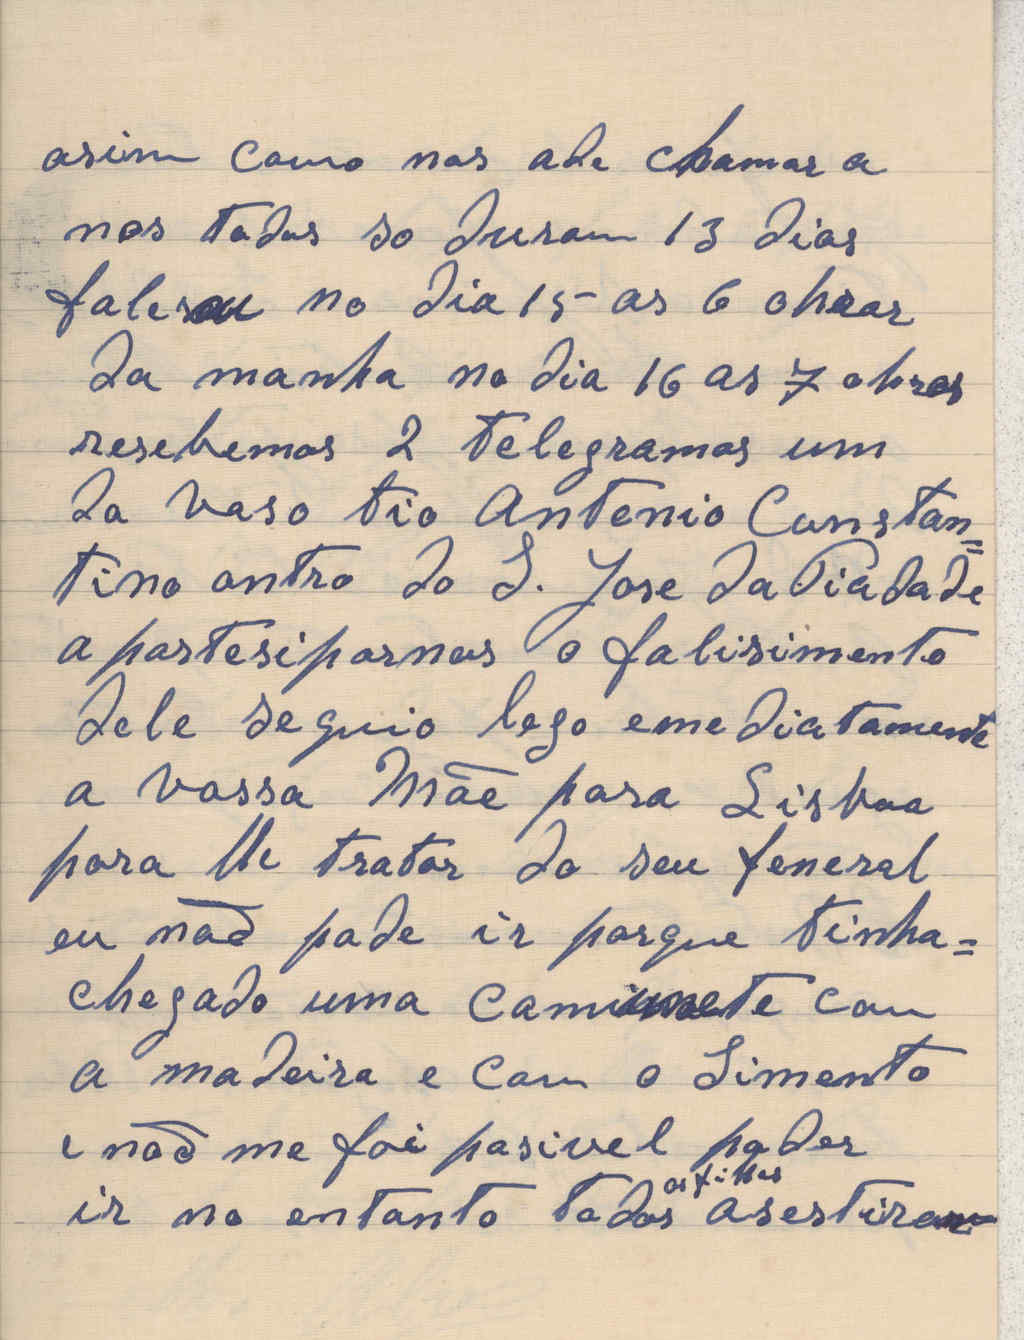 asim como nos ade chamar a
nos todos so duram 13 dias
faleseu no dia 15 as 6 ohras
da manha no dia 16 as 7 ohras
resebemos 2 telegramas um
do voso tio Antonio Constan=
tino outro do S. Jose da Piadade
a partesiparnos o falisimento
dele seguio logo emediatamente
a vossa Mãe para Lisboa
para lhe tratar do seu feneral
eu não pode ir porque tinha=
chegado uma camiunete com
a madeira e com o Simento
e não me foi pasivel poder
os filhos
ir no entanto todos asestiram